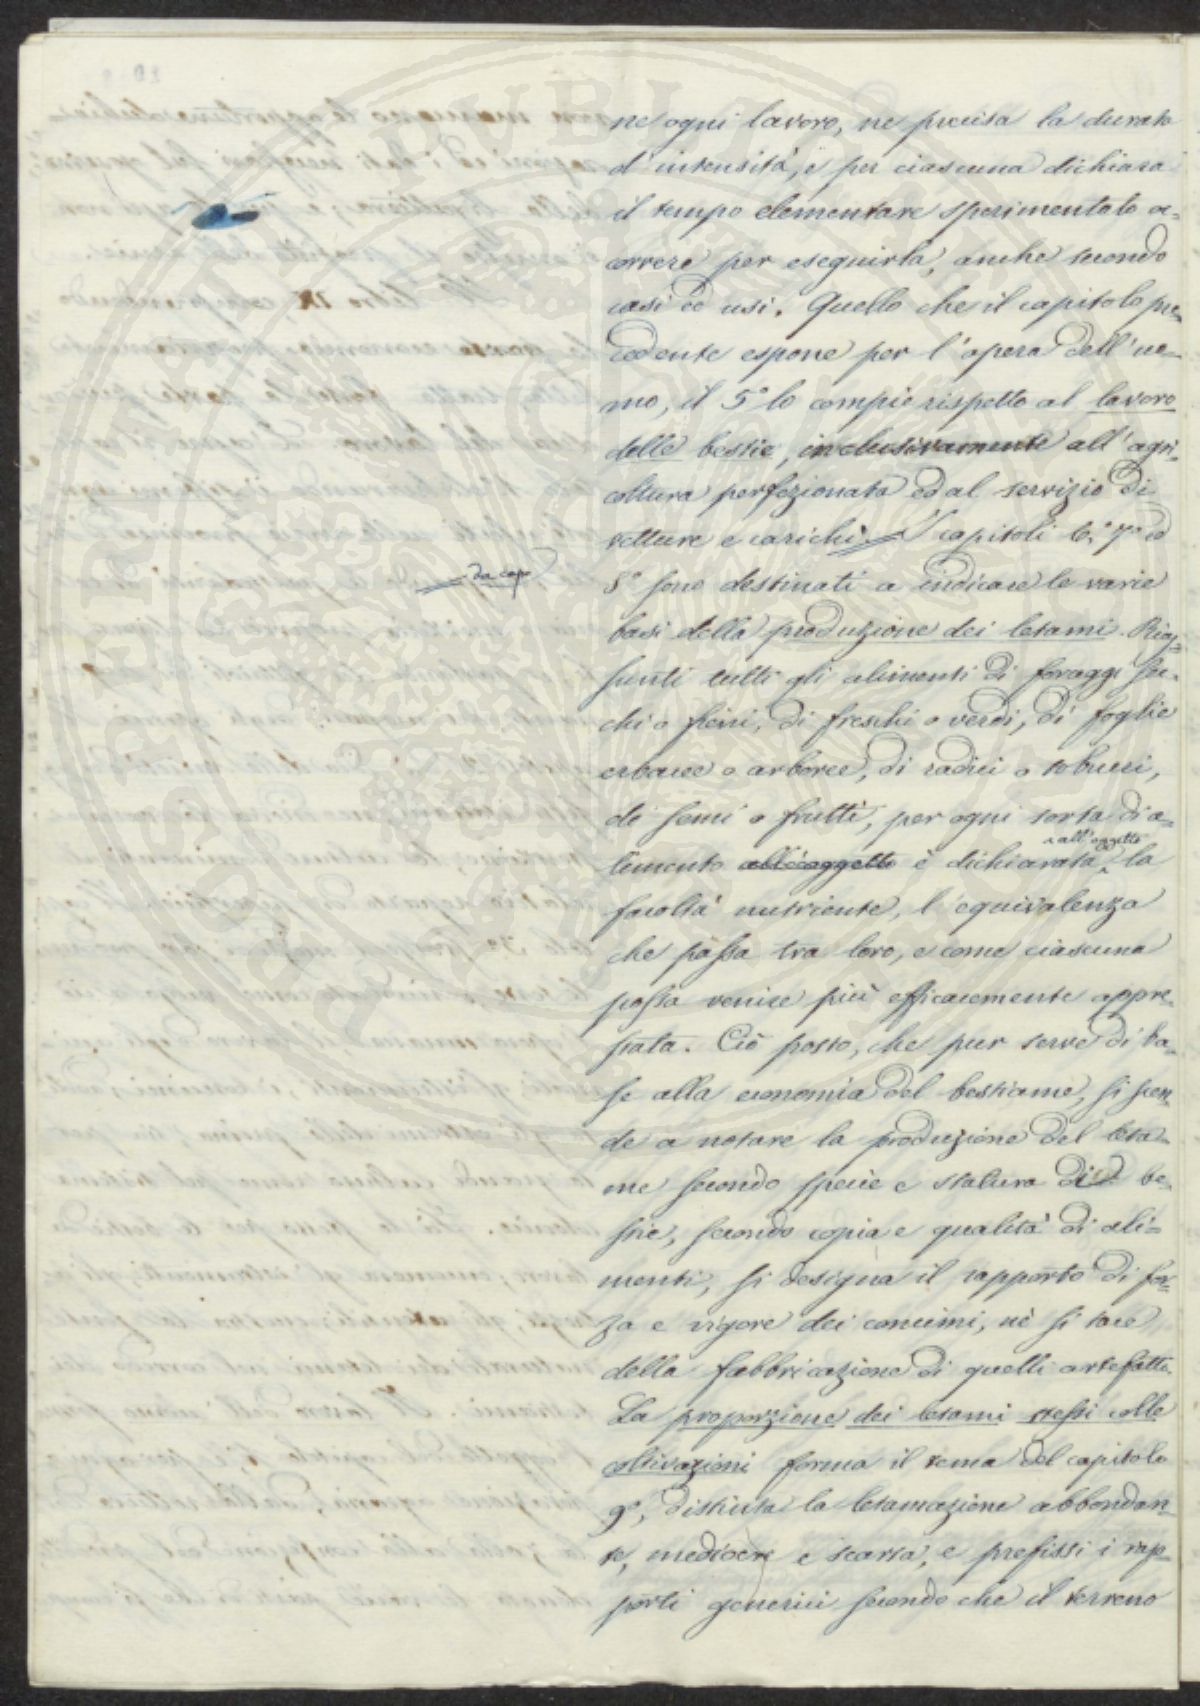 ne ogni lavoro, ne precisa la durata
d'intensità, e per ciascuna dichiara
il tempo elementare sperimentato oc=
correre per eseguirla, anche secondo
casi ed usi. Quello che il capitolo pre=
cedente espone per l'opera dell'uo=
mo, il 5° lo compie rispetto al lavoro
delle bestie, inclusivamente all'agri=
coltura perfezionata ed al servizio di
vetture e carichi. I capitoli 6.° 7° ed
da capo
8° sono destinati a indicare le varie
basi della produzione dei letami. Rias=
sunti tutti gli alimenti di foraggi sec=
chi o fieni, di freschi o verdi, di foglie
erbacee o arboree, di radici o tuberi,
di semi o frutti, per ogni sorta di a=
limento all'oggetto è dichiarata all'oggetto la
facoltà nutriente, l'equivalenza
che passa tra loro, e come ciascuna
possa venire più efficacemente appre=
stata. Ciò posto, che pur serve di ba=
se alla economia del bestiame, si scen=
de a notare la produzione del leta=
me secondo specie e statura di be=
stie, secondo copia e qualità di ali=
menti, si designa il rapporto di for=
za e vigore dei concimi, nè si tace
della fabbricazione di quelli artefatti.
La proporzione dei letami stessi colle
coltivazioni forma il tema del capitolo
9°, distinta la letamazione abbondan=
te, mediocre e scarsa, e prefissi i rap=
porti generici secondo che il terreno